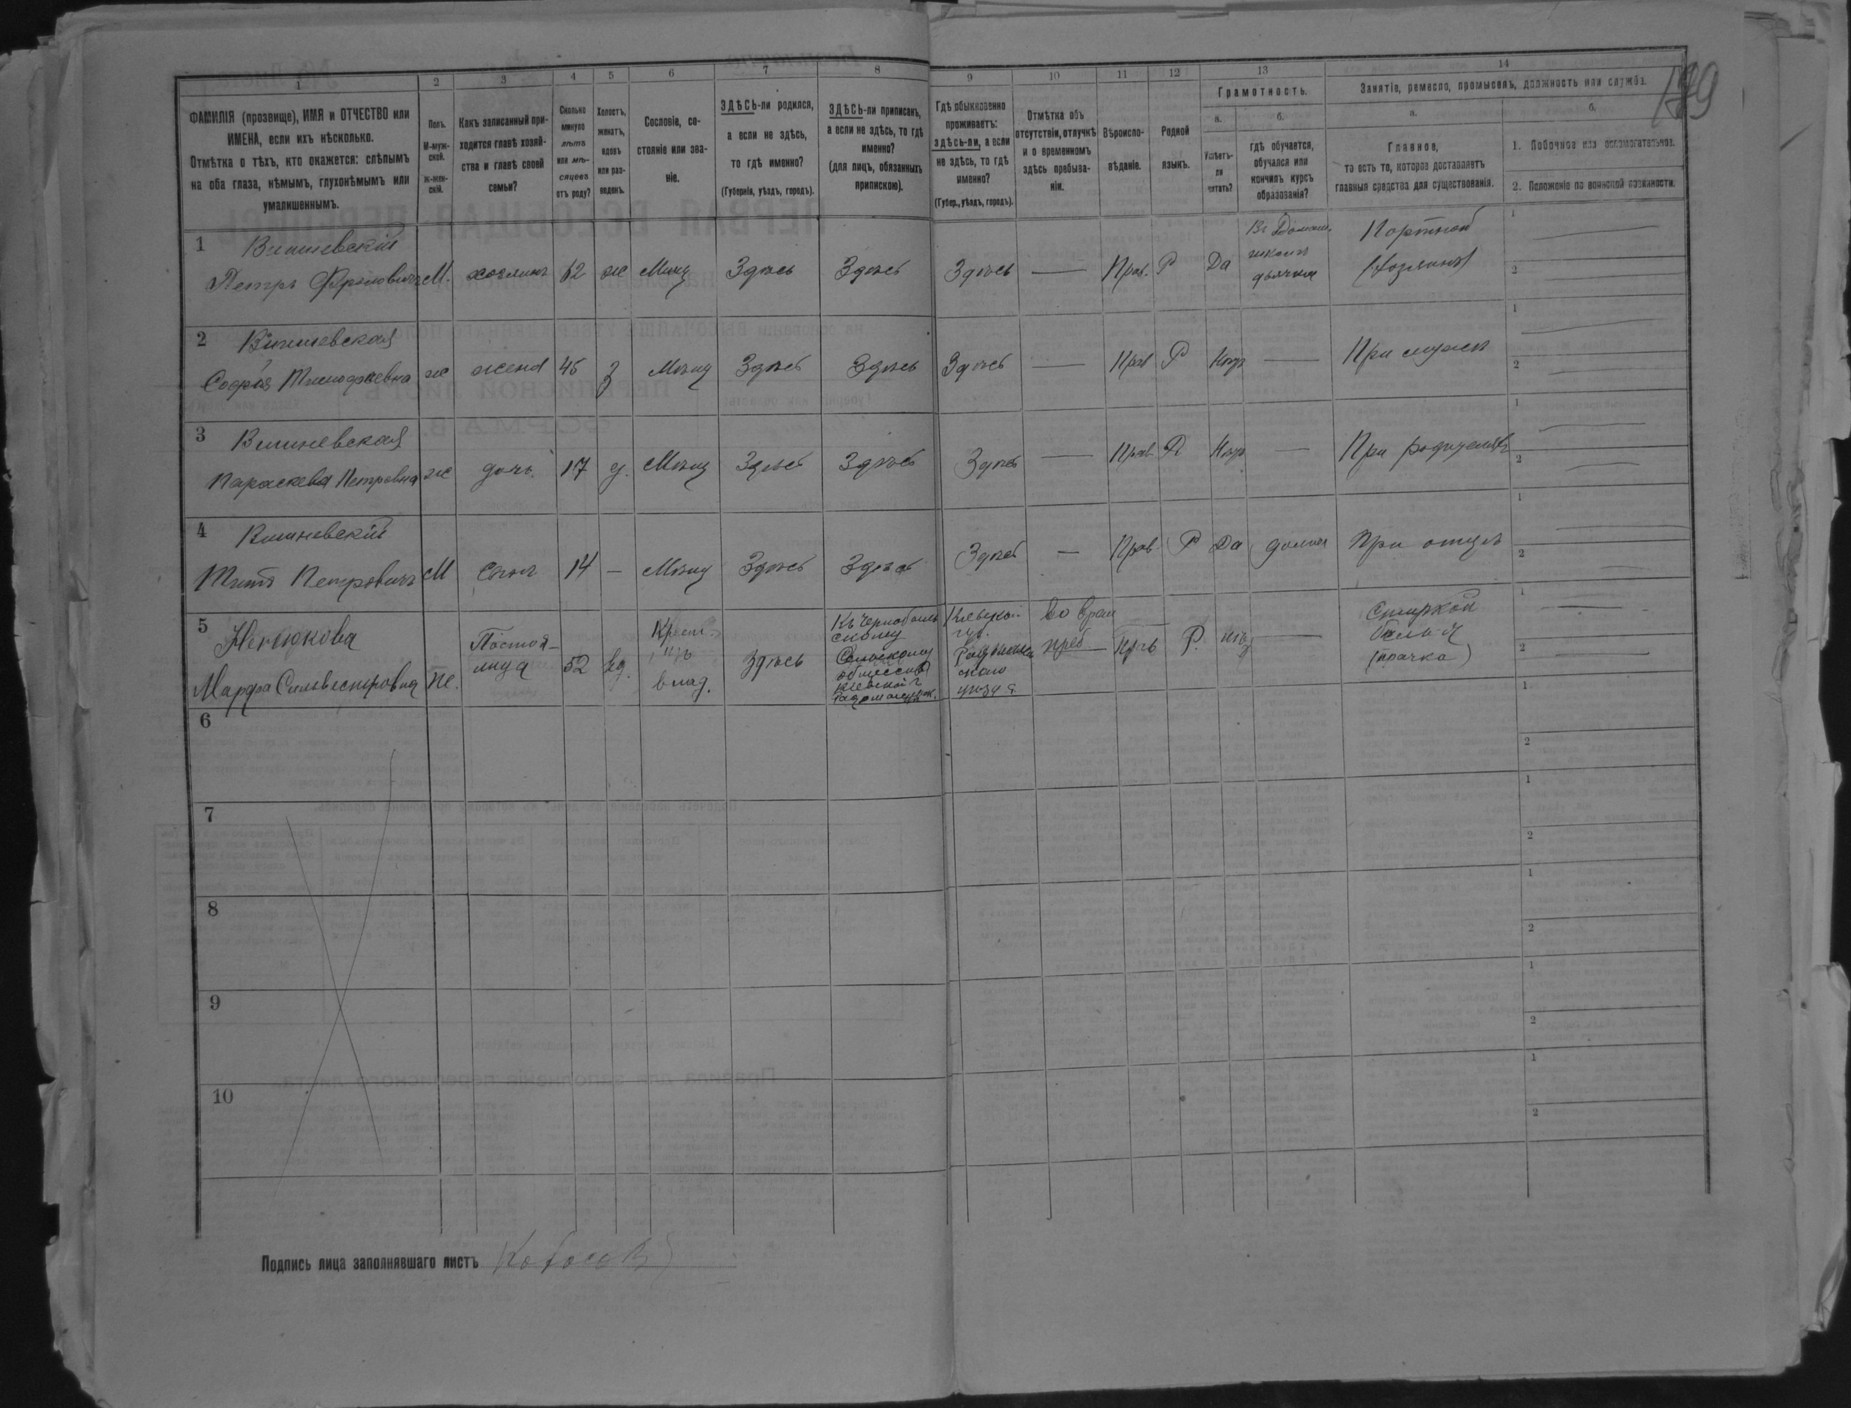 199
1 2 3 4 5 6 7 8 9 10 11 12 13 14
ФАМИЛІЯ (прозвище), ИМЯ и ОТЧЕСТВО или
ИМЕНА, если ихъ нѣсколько.
Отмѣтка о тѣхъ, кто окажется: слѣпымъ
на оба глаза, нѣмымъ, глухонѣмымъ или
умалишеннымъ.
Полъ.
М-муж-
ской.
Ж-жен-
скій.
Какъ записанный при-
ходится главѣ хозяй-
ства и главѣ своей
семьи?
Сколько
минуло
лѣтъ
или мѣ-
сяцевъ
отъ роду?
Холостъ,
женатъ,
вдовъ
или раз-
веденъ.
Сословіе, со-
стояніе или зва-
ніе.
ЗДѢСЬ-ли родился,
а если не здѣсь,
то гдѣ именно?
(Губернія, уѣздъ, городъ).
ЗДѢСЬ-ли приписанъ,
а если не здѣсь, то гдѣ
именно?
(для лицъ, обязанныхъ
припискою).
Гдѣ обыкновенно
проживаетъ:
здѣсь-ли, а если
не здѣсь, то гдѣ
именно?
(Губер., уѣздъ, городъ).
Отмѣтка объ
отсутствіи, отлучкѣ
и о временномъ
здѣсь пребыва-
ніи.
Вѣроиспо-
вѣданіе.
Родной
языкъ.
Грамотность.
а.
Умѣетъ-
ли
читать?
б.
гдѣ обучается,
обучался или
кончилъ курсъ
образованія?
Занятіе, ремесло, промыселъ, должность или служба.
а.
Главное,
то есть то, которое доставляетъ
главныя средства для существованія.
б.
1. Побочное или вспомогательное.
2. Положеніе по воинской повинности.
1 Вишневскій
Петръ Фроловичъ М. хозяинъ 62 ж Мѣщ Здѣсь Здѣсь Здѣсь — Прав. Р Да
Портной
(хозяинъ)
1
2
2 Вишневская
Софья Тимофеевна ж жена 45 з Мѣщ Здѣсь Здѣсь Здѣсь — Прав Р —
При мужѣ
1
2
3 Вишневская
Параскева Петровна ж дочь 17 д. Мѣщ Здѣсь Здѣсь Здѣсь — Прав. Р —
При родителяхъ
1
2
4 Вишневскій
Титъ Петровичъ М Сынъ 14 — Мѣщ Здѣсь Здѣсь Здѣсь — Прав. Р Да
При отцѣ
1
2
5
Марфа Сильвестровна Ж. 52 вд.
Крест.
изъ
влад.
Здѣсь
Къ Чернобыль
скому
Сельскому
обществу
Кіевской г
Кіевской
губ.
Радомысль
скаго
уѣзда
Во врем
преб — Прав Р. —
Стиркой
бѣлья
(прачка)
1
2
6 1 2
7 1 2
8 1 2
9 1 2
10 1 2
Подпись лица заполнявшаго листъ